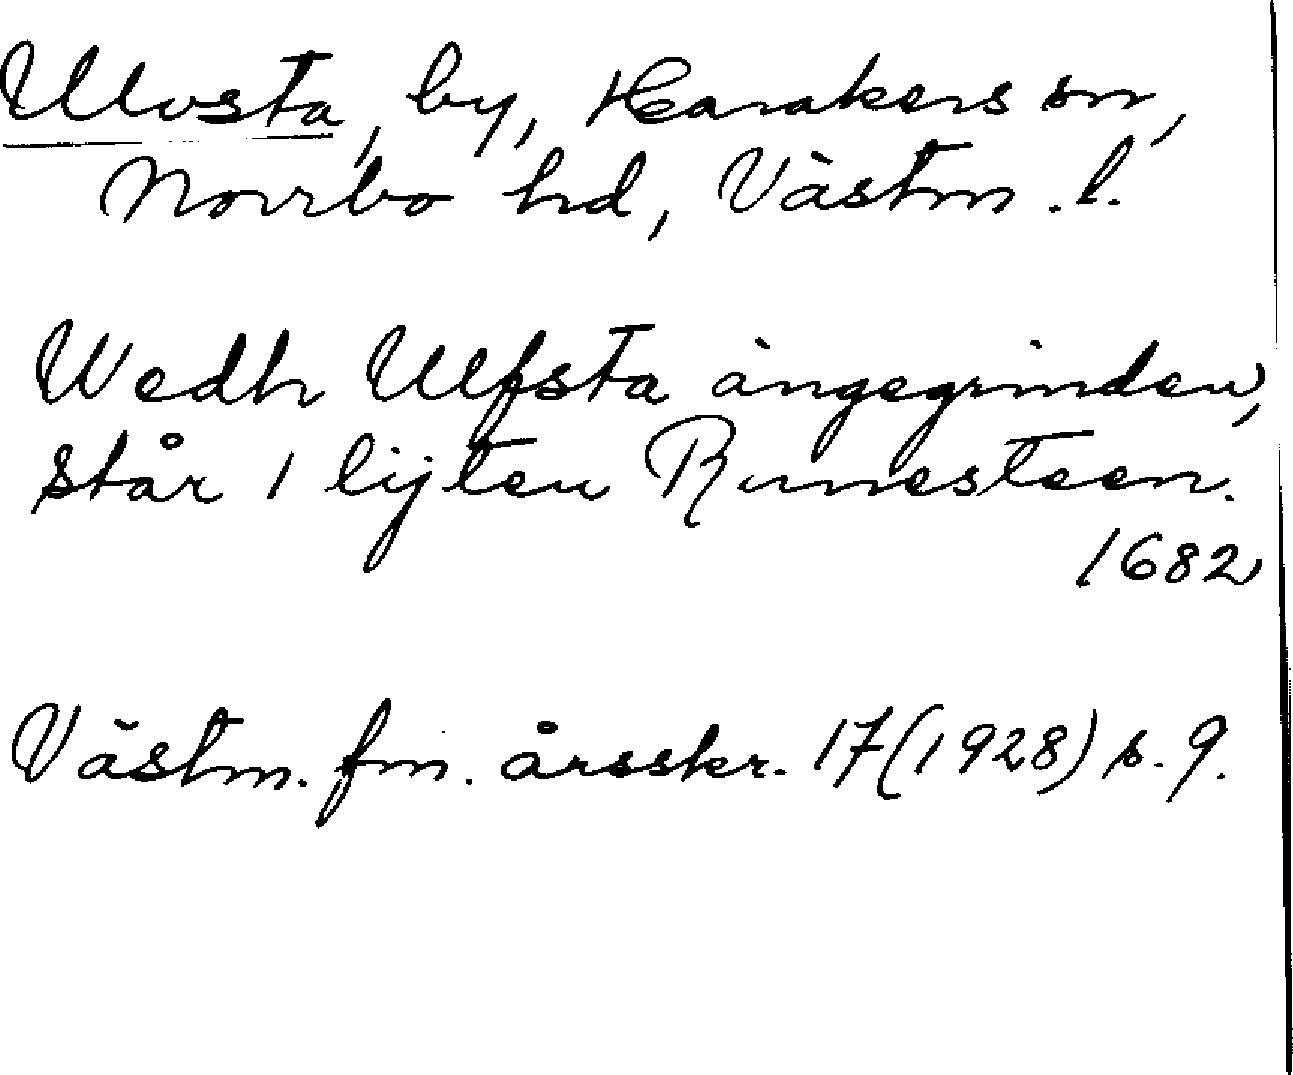 Ulvsta, by, Harakers sn,
Norrbo hd, Västm. l.
Wedh Ulfsta ängegrinden,
står 1 lijten Runesteen.
1682
Västm. fm. årsskr. 17(1928) s. 9.